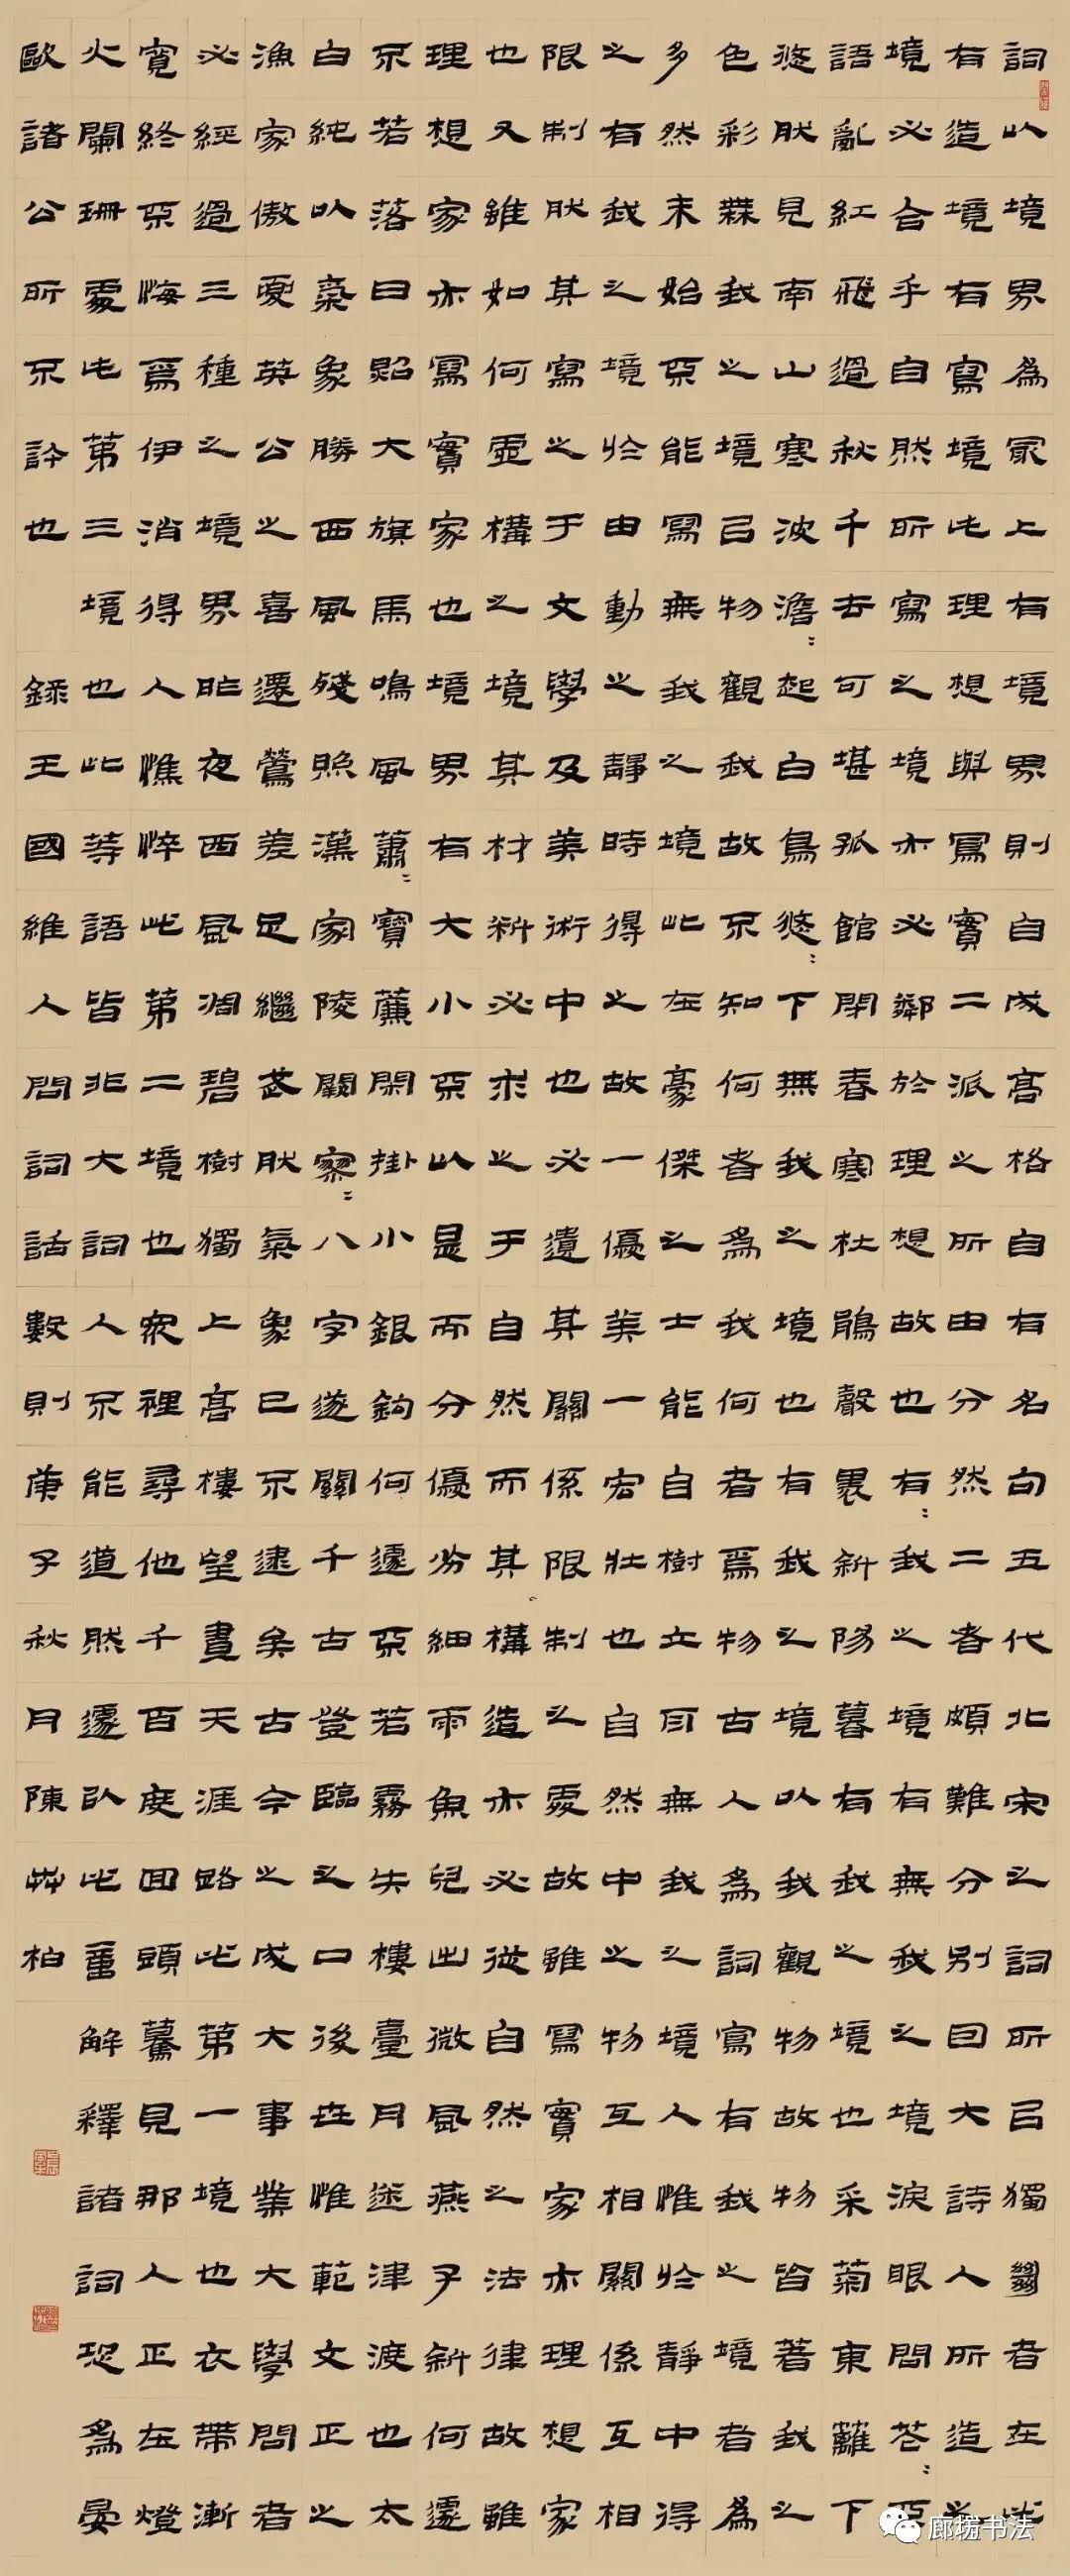 詞以境界為冣上有境界則自成高格自有名句五代北宋之詞所以獨絕者在此
有造境有寫境此理想與寫實二派之所由分然二者頗難分別曰大詩人所造之
境必合乎自然所寫之境亦必鄰於理想故也有=我之境有無我之境淚眼問花=不
語亂紅飛過秋千去可堪孤館閉春寒杜鵑聲裏斜陽暮有我之境也采菊東籬下
悠然見南山寒波澹=起白鳥悠=下無我之境也有我之境以我觀物故物皆著我之
色彩無我之境以物觀我故不知何者為我何者為物古人為詞寫有我之境者為
多然未始不能寫無我之境此在豪傑之士能自樹立耳無我之境人惟於靜中得
之有我之境於由動之靜時得之故一優美一宏壯也自然中之物互相關係互相
限制然其寫之于文學及美術中也必遺其關係限制之處故雖寫實家亦理想家
也又雖如何虛構之境其材料必求之于自然而其構造亦必從自然之法律故雖
理想家亦寫實家也境界有大小不以是而分優劣細雨魚兒出微風燕子斜何遽
不若落日照大旗馬鳴風蕭=寶簾閑掛小銀鈎何遽不若霧失樓臺月迷津渡也太
白純以氣象勝西風殘照漢家陵闕寥=八字遂關千古登臨之口後世惟範文正之
漁家傲夏英公之喜遷鶯差足繼武然氣象已不逮矣古今之成大事業大學問者
必經過三種之境界昨夜西風凋碧樹獨上高樓望盡天涯路此第一境也衣帶漸
寬終不悔為伊消得人憔悴此第二境也衆裡尋他千百度回頭驀見那人正在燈
火闌珊處此第三境也此等語皆非大詞人不能道然遽以此意解釋諸詞恐為晏
歐諸公所不許也 錄王國維人間詞話數則庚子秋月陳艸柏
书法